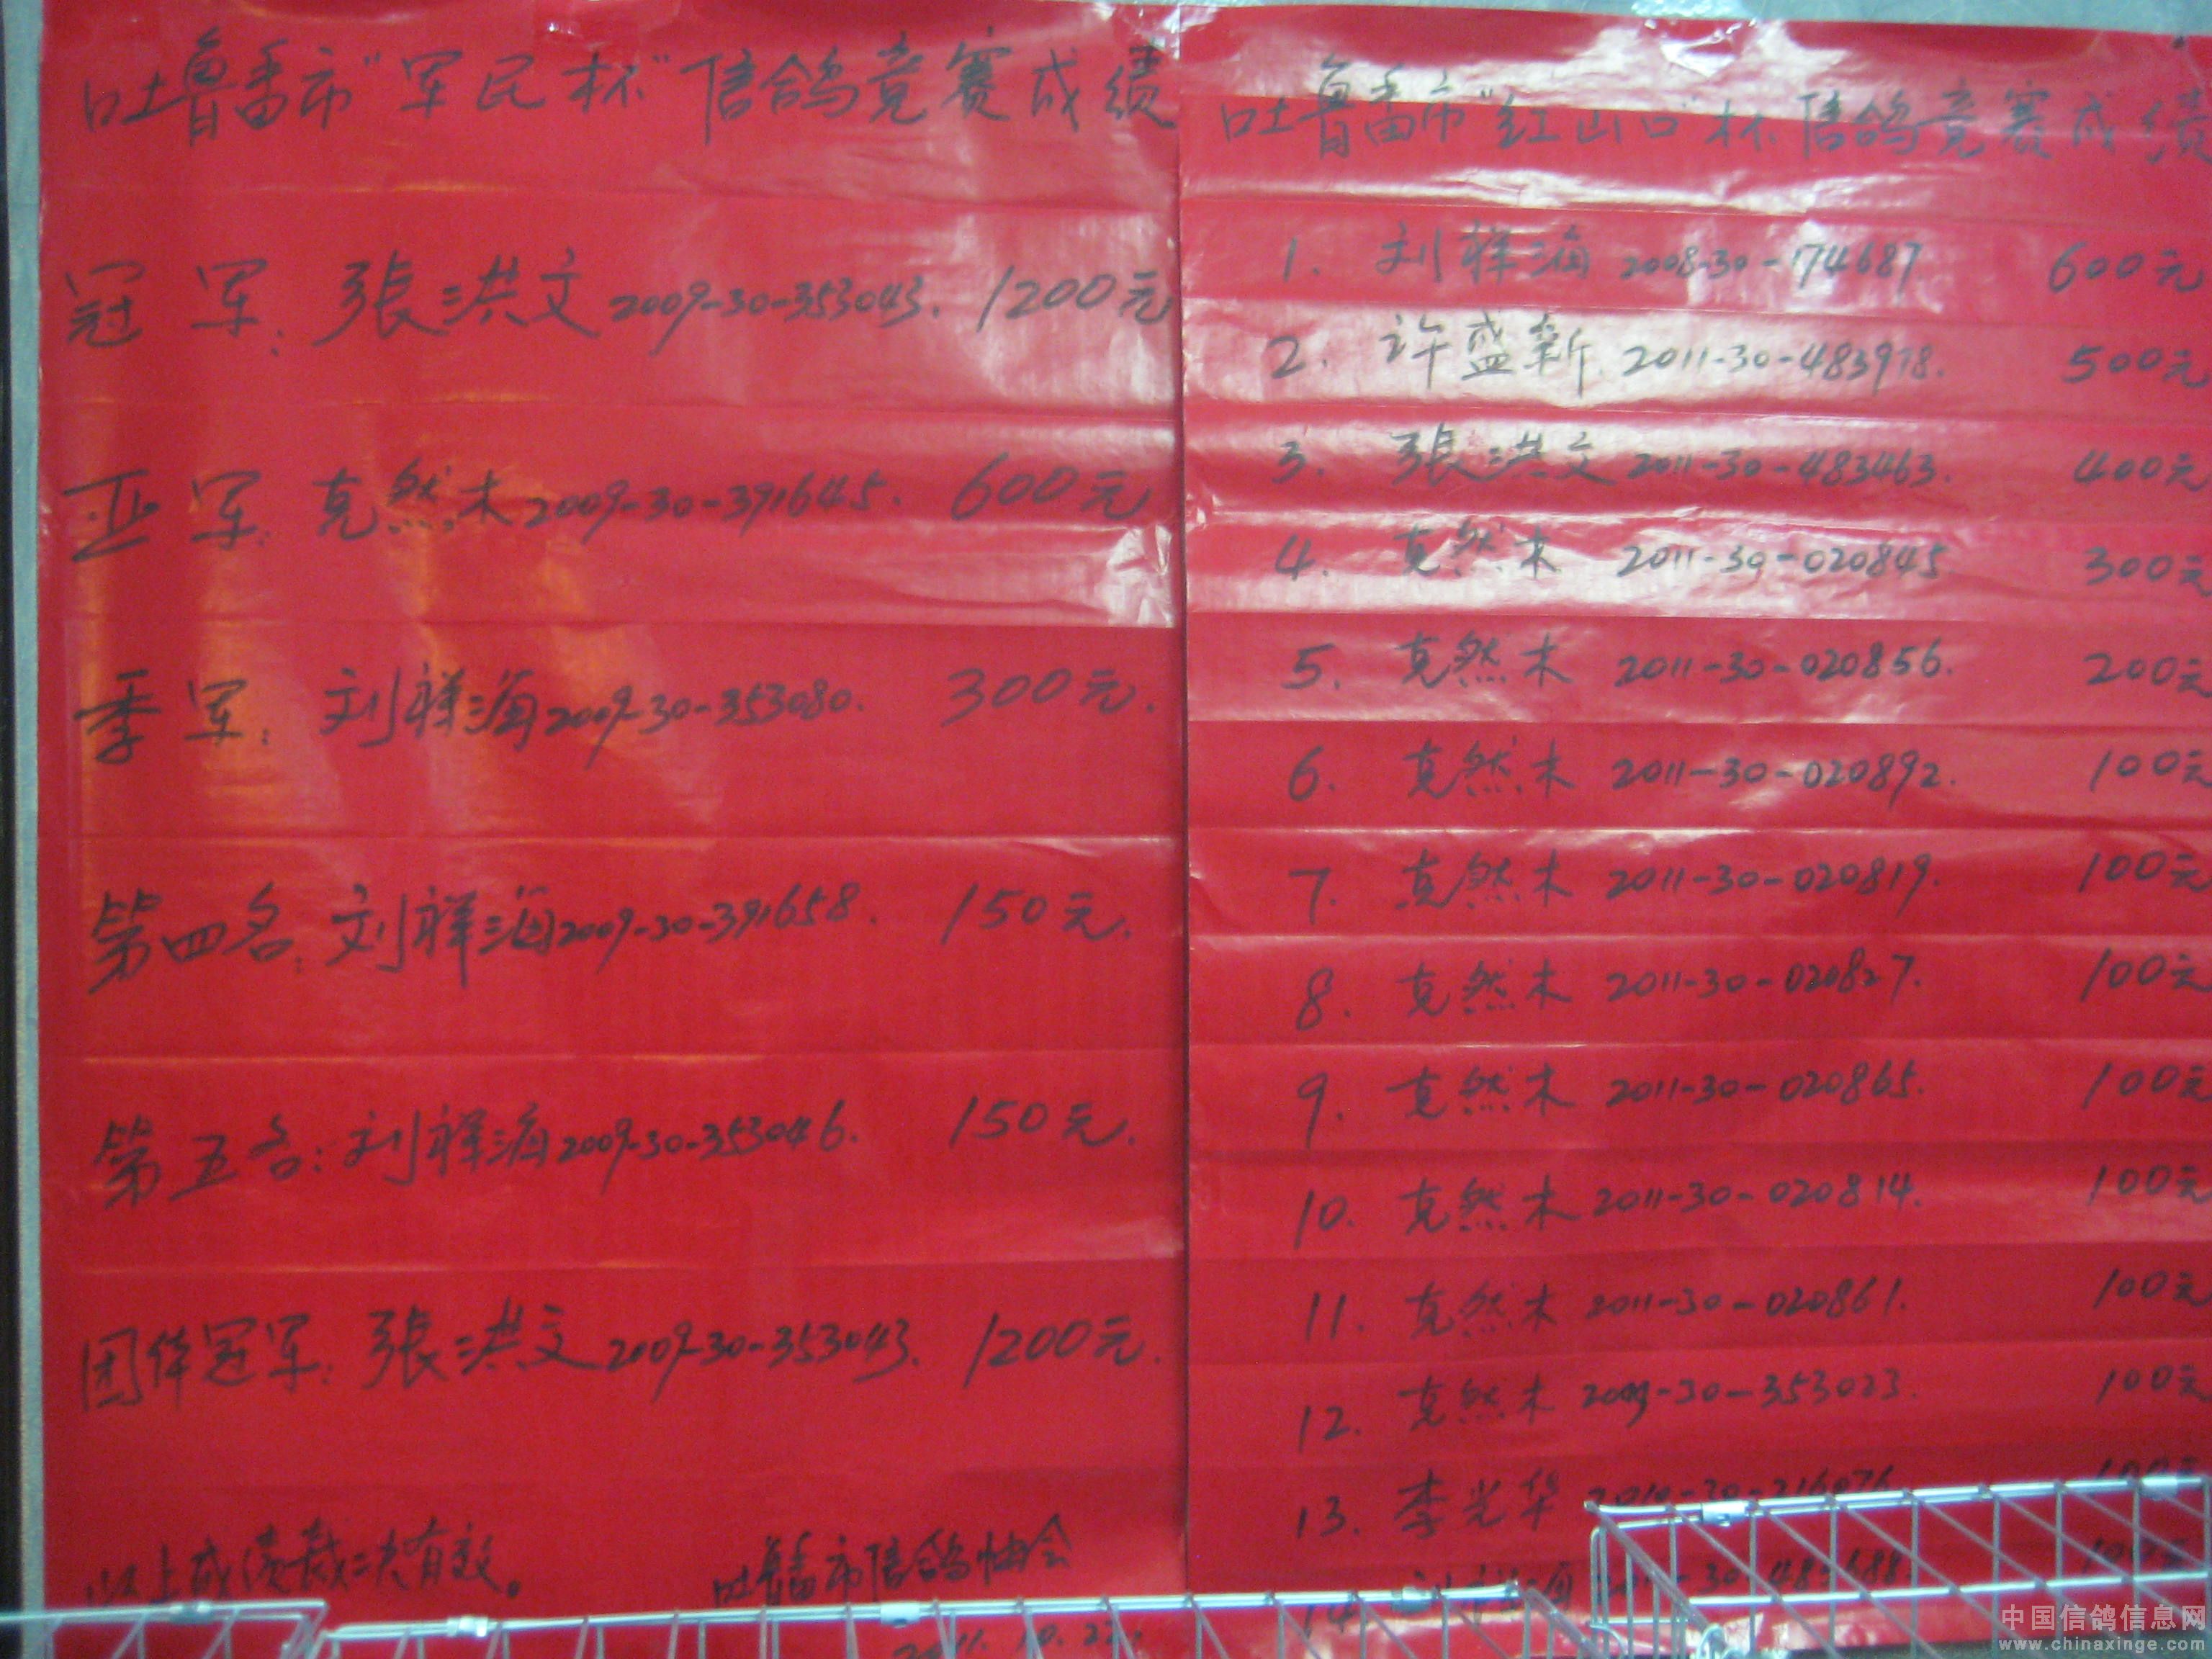 吐鲁番市"军民杯"信鸽竞赛成绩
冠军：張洪文2009-30-353043. 1200元
亚军：克然木2009-30-391645. 600元
季军：刘祥海2009-30-353080. 300元.
第四名：刘祥海2009-30-391658. 150元.
第五名：刘祥海2009-30-353046. 150元.
团体冠军：張洪文2009-30-353043. 1200元.
以上成绩裁决有效。
吐鲁番市信鸽协会
2011.10.22.
吐鲁番市"红山口"杯信鸽竞赛成绩
1. 刘祥海 2008-30-174687 600元
2. 许盛新. 2011-30-483978. 500元
3. 張洪文 2011-30-483463. 400元
4. 克然木 2011-30-020845 300元
5. 克然木 2011-30-020856. 200元
6. 克然木 2011-30-020892. 100元
7. 克然木 2011-30-020819. 100元
8. 克然木 2011-30-020827. 100元
9. 克然木 2011-30-020865. 100元
10. 克然木 2011-30-020814. 100元
11. 克然木 2011-30-020861. 100元
12. 克然木 2009-30-353023. 100元
13. 李光华 2010-30-216076 100元
14 刘祥海 100元
中国信鸽信息网
www.chinaxinge.com